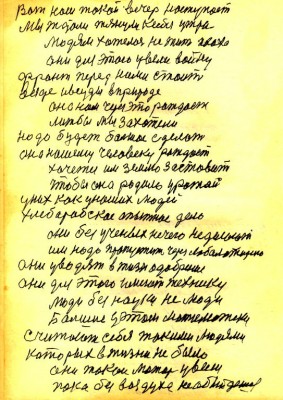 Вот нам такой вечер наступает
мы ждали
людям хотелось не жить плохо
они для этого увели войну
фронт перед нами стоит
везде и всюду в природе
она нам чудо рождает
мы захотели
надо будет больше сделать
она нашему человеку рождает
хочет им земля заставит
чтобы она родала урожай
у них как у наших людей
хлебаробское опытное дело
они без ученых нечего не делают
им надо пропустить через
они уводят в жизнь
они для этого имеют технику
люди без науки не люди
больше у этом
считают себя такими людями
которых в жизни не было
они такой мотор увели
пока без воздуха не